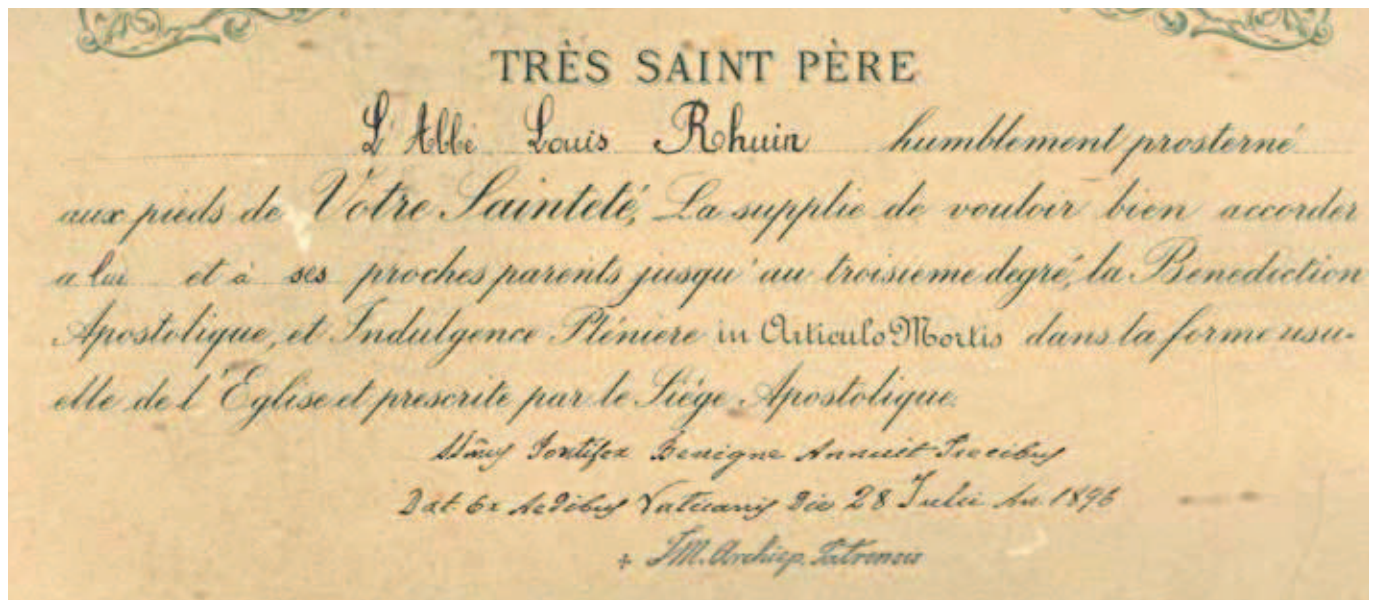 TRÈS SAINT PÈRE
L'Abbé Louis Rhuin humblement prosterné
aux pieds de Votre Sainteté, La supplie de vouloir bien accorder
a lui et à ses proches parents jusqu'au troisieme degré, la Benediction
Apostolique, et Indulgence Plénière in Articulo Mortis dans la forme usu-
elle de l'Eglise et prescrite par le Siége Apostolique.
SSm̃us Pontifex Benigne Annuit Precibus
Dat. Ex Aedibus Vaticanis Die 28 Julii An. 1896
+ F.M. Archiep. Patrensis